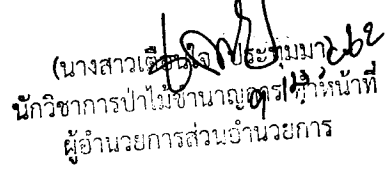 (นางสาวเตือนใจ ประทุมมา)
นักวิชาการป่าไม้ชำนาญการ ทำหน้าที่
ผู้อำนวยการส่วนอำนวยการ